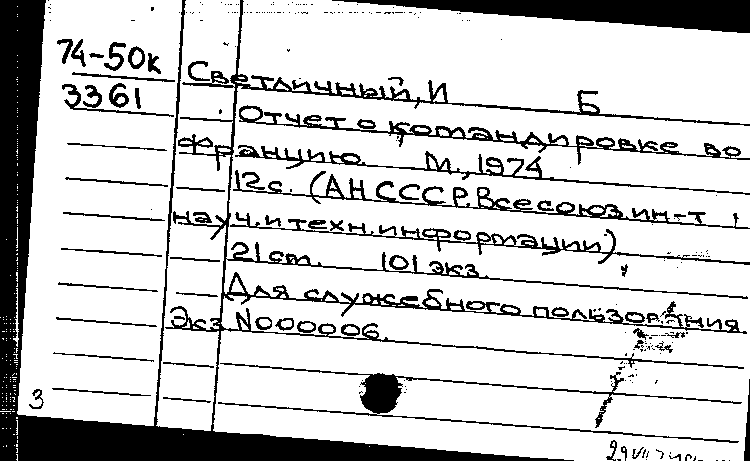 74-50к
3361
Светличный, И Б
Отчет о командировке во
Францию. М., 1974.
12с. (АН СССР. Всесоюз. ин-т
науч. и техн. информации).
21 cm. 101 экз.
Для служебного пользования.
Экз. N000006.
3